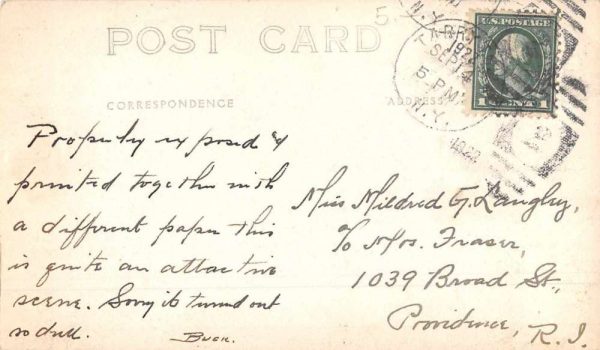 5
POST CARD
N.Y.
SEP 4
5 PM
N.Y.
U.S. POSTAGE
1 CENT 1
1922
CORRESPONDENCE
ADDRESS
Properly exposed &
printed together with
a different paper this
is quite an attractive
scene. Sorry it turned out
so dull. Buck.
Miss Mildred G. Langley,
c/o Mrs. Fraser,
1039 Broad St.,
Providence, R.I.